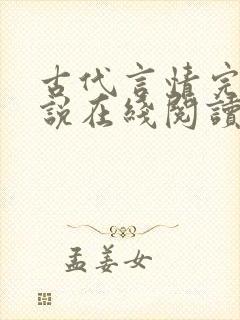 古代言情完
說在綫閱讀
孟姜女